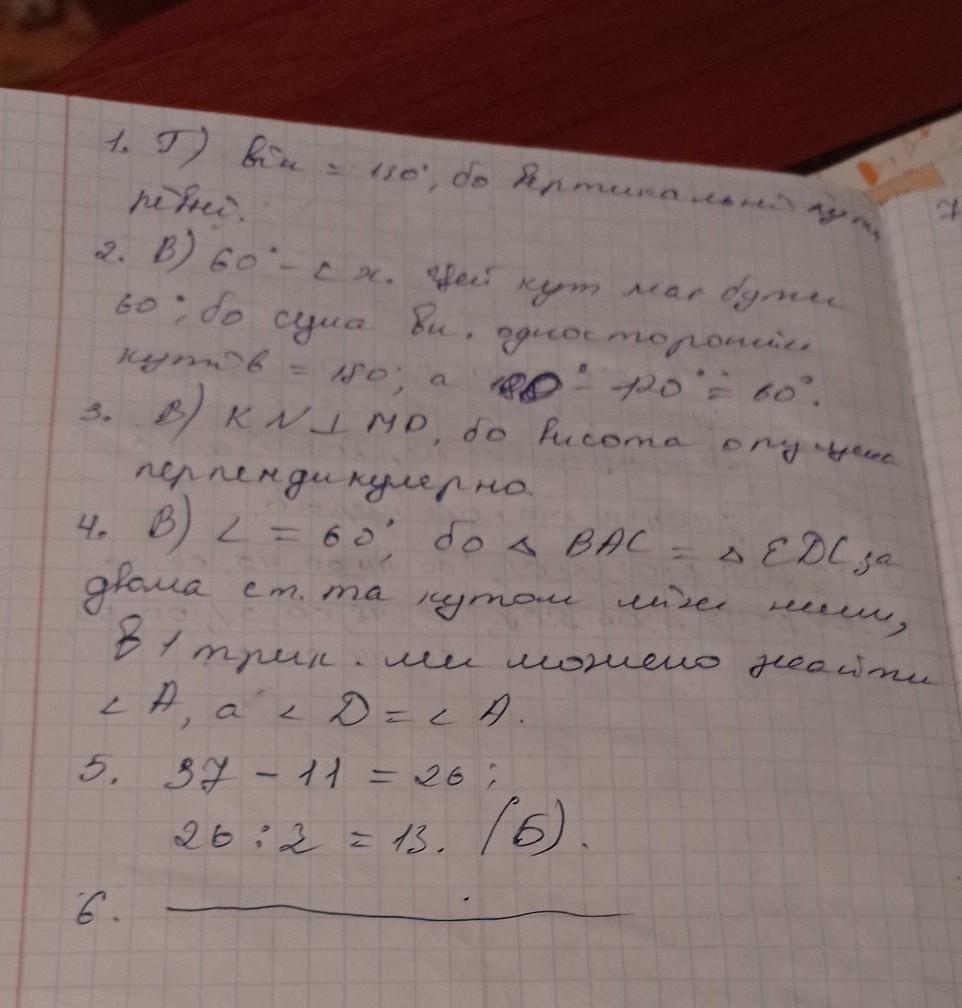 1. Г) він = 130°, бо вертикальні кути
рівні.
2. В) 60° - ∠ х. Цей кут має бути
60°, бо сума вн. односторонніх
кутів = 180°, а 180° - 120° = 60°.
3. В) KN ⊥ MP, бо висота опущена
перпендикулерно.
4. В) ∠ = 60°, бо △ BAC = △ EDC за
двома ст. та кутом між ними,
В 1 трик. ми можемо знайти
∠ A, а ∠ D = ∠ A.
5. 37 - 11 = 26;
26 : 2 = 13. (Б).
6.
7